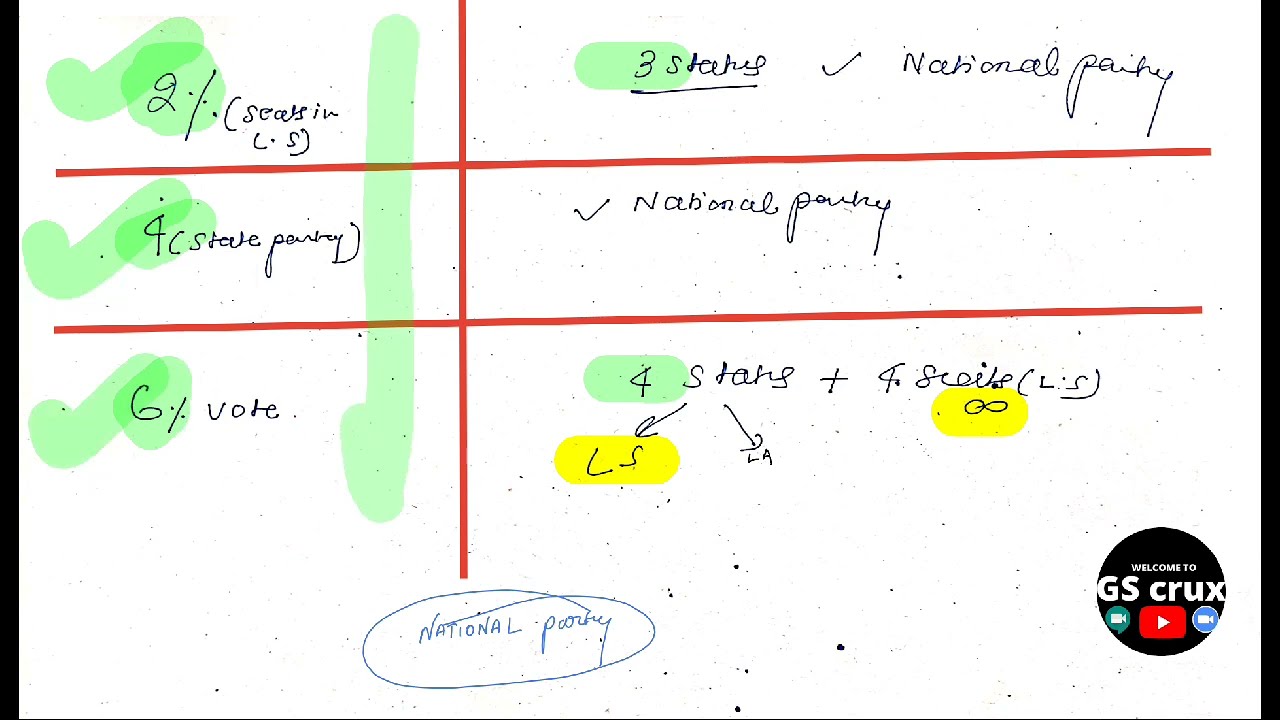 2%. (seats in
L.S)
3 states ✓ National party
4 (state party)
✓ National party
6% vote.
4 states + 4 seats (L.S)
∞
LS
LA
NATIONAL party
WELCOME TO
GS crux